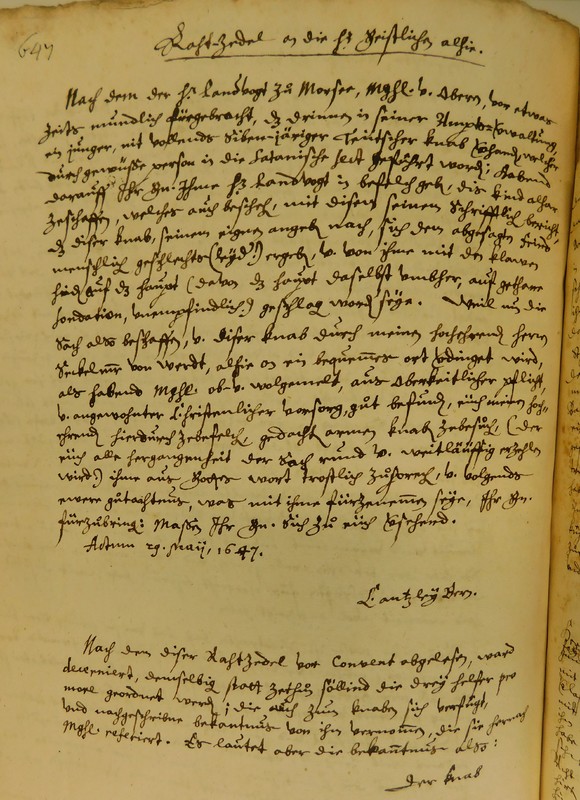 647
Raht-Zedel an die hh. Geistlichen alhie.
Nach dem der hr. Landvogt zu Morsee, Mghl. v. Obern, vor etwas
zeits mundlich fürgebracht, dz drinnen in seiner Ampts-Vwaltung,
ein junger, nit vollends siben-järiger Teutscher knab vhanden, welcher
durch gewüsse person in die Satanische sect geführt worden; habend
darauff Ihr Gn. Ihme hr. Landvogt in befelch geben, dis kind alhar
zeschaffen, welches auch beschehen, mit disem seinem schrifftlichen bericht,
dz diser knab, seinem eignen angeben nach, sich dem abgesagten feind
menschlichen geschlechts (leyder!) ergeben, v. von ihme mit den klawen
händen auf dz haupt (davon dz haupt daselbst umbher, auf gethane
sondation, unempfindlich.) geschlagen worden seye. Weil nun die
Sach also beschaffen, v. diser knab durch meinen hochehrenden herren
Sekelmr. von Werdt, alhie an ein bequemmes ort vdinget wird,
als habend Mghl. ob- v. wolgemelt, aus Oberkeitlicher pflicht,
v. angewohnter Christenlicher vorsorg, gut befunden, euch meinen hoch-
ehrenden hierdurch zebefelchen, gedacht armen knaben zebesuchen (der
euch alle hergangenheit der Sach rund v. weitläuffig erzehlen
wird.) ihme aus Gottes wort trostlich zusprechen, v. volgends
ewere gutachtnus, was mit ihme fürzenemmen seye, Ihr Gn.
fürzubringen: Massen Ihr Gn. sich zu euch vsehend.
Actum 29. Maij, 1647.
Cantzley Bern.
Nach dem diser Rahtzedel vor Convent abgelesen, ward
decerniert, demselbigen statt zethun sollind die drey helfer pro
more geordnet werden; die auch zum knaben sich verfügt,
und nachgeschribne bekantnus von ihm vernommen, die sie hernach
Mghl. referiert. Es lautet aber die bekantnus also:
Der knab